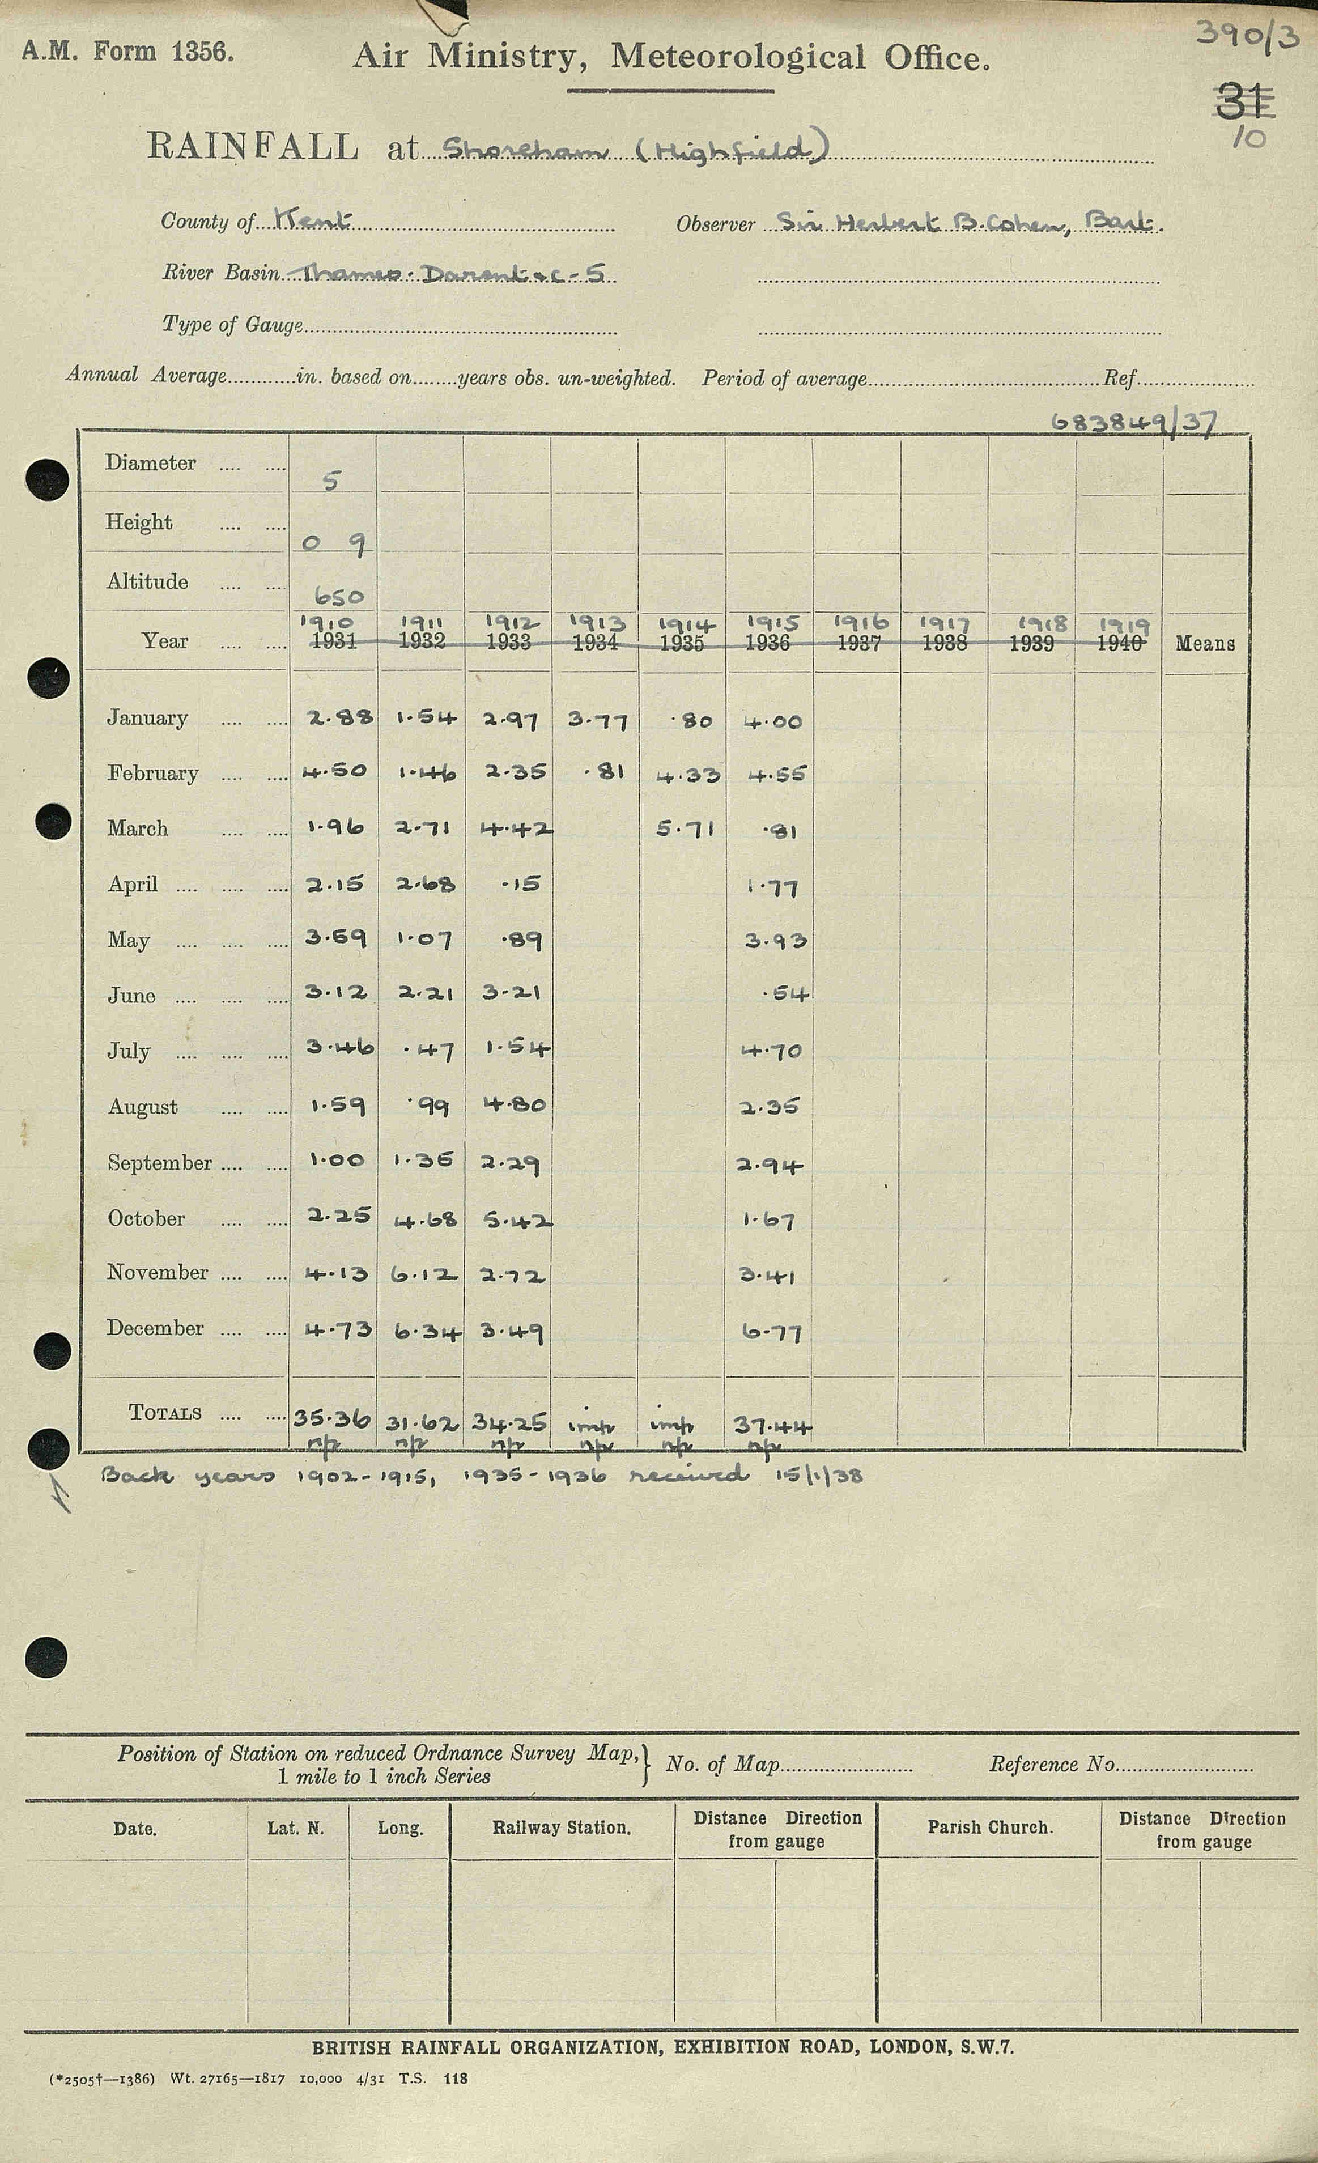 390/3
A.M. Form 1356.
Air Ministry, Meteorological Office.
31
10
RAINFALL at Shoreham (Highfield)
County of Kent Observer Sir Herbert B. Cohen, Bart.
River Basin Thames. Darent &c - 5
Type of Gauge
Annual Average in. based on years obs. un-weighted. Period of average Ref.
683849/37
Diameter 5
Height 0 9
Altitude 650
1910 1911 1912 1913 1914 1915 1916 1917 1918 1919
Year 1931 1932 1933 1934 1935 1936 1937 1938 1939 1940 Means
January 2.88 1.54 2.97 3.77 .80 4.00
February 4.50 1.46 2.35 .81 4.33 4.55
March 1.96 2.71 4.42 5.71 .81
April 2.15 2.68 .15 1.77
May 3.59 1.07 .89 3.93
June 3.12 2.21 3.21 .54
July 3.46 .47 1.54 4.70
August 1.59 .99 4.80 2.35
September 1.00 1.35 2.29 2.94
October 2.25 4.68 5.42 1.67
November 4.13 6.12 2.72 3.41
December 4.73 6.34 3.49 6.77
TOTALS 35.36 31.62 34.25 imp imp 37.44
np np np np np np
Back years 1902-1915, 1935-1936 received 15/1/38
Position of Station on reduced Ordnance Survey Map, } No. of Map Reference No.
1 mile to 1 inch Series
Date. Lat. N. Long. Railway Station. Distance Direction from gauge Parish Church. Distance Direction from gauge
BRITISH RAINFALL ORGANIZATION, EXHIBITION ROAD, LONDON, S.W.7.
(*2505†—1386) Wt. 27165—1817 10,000 4/31 T.S. 118